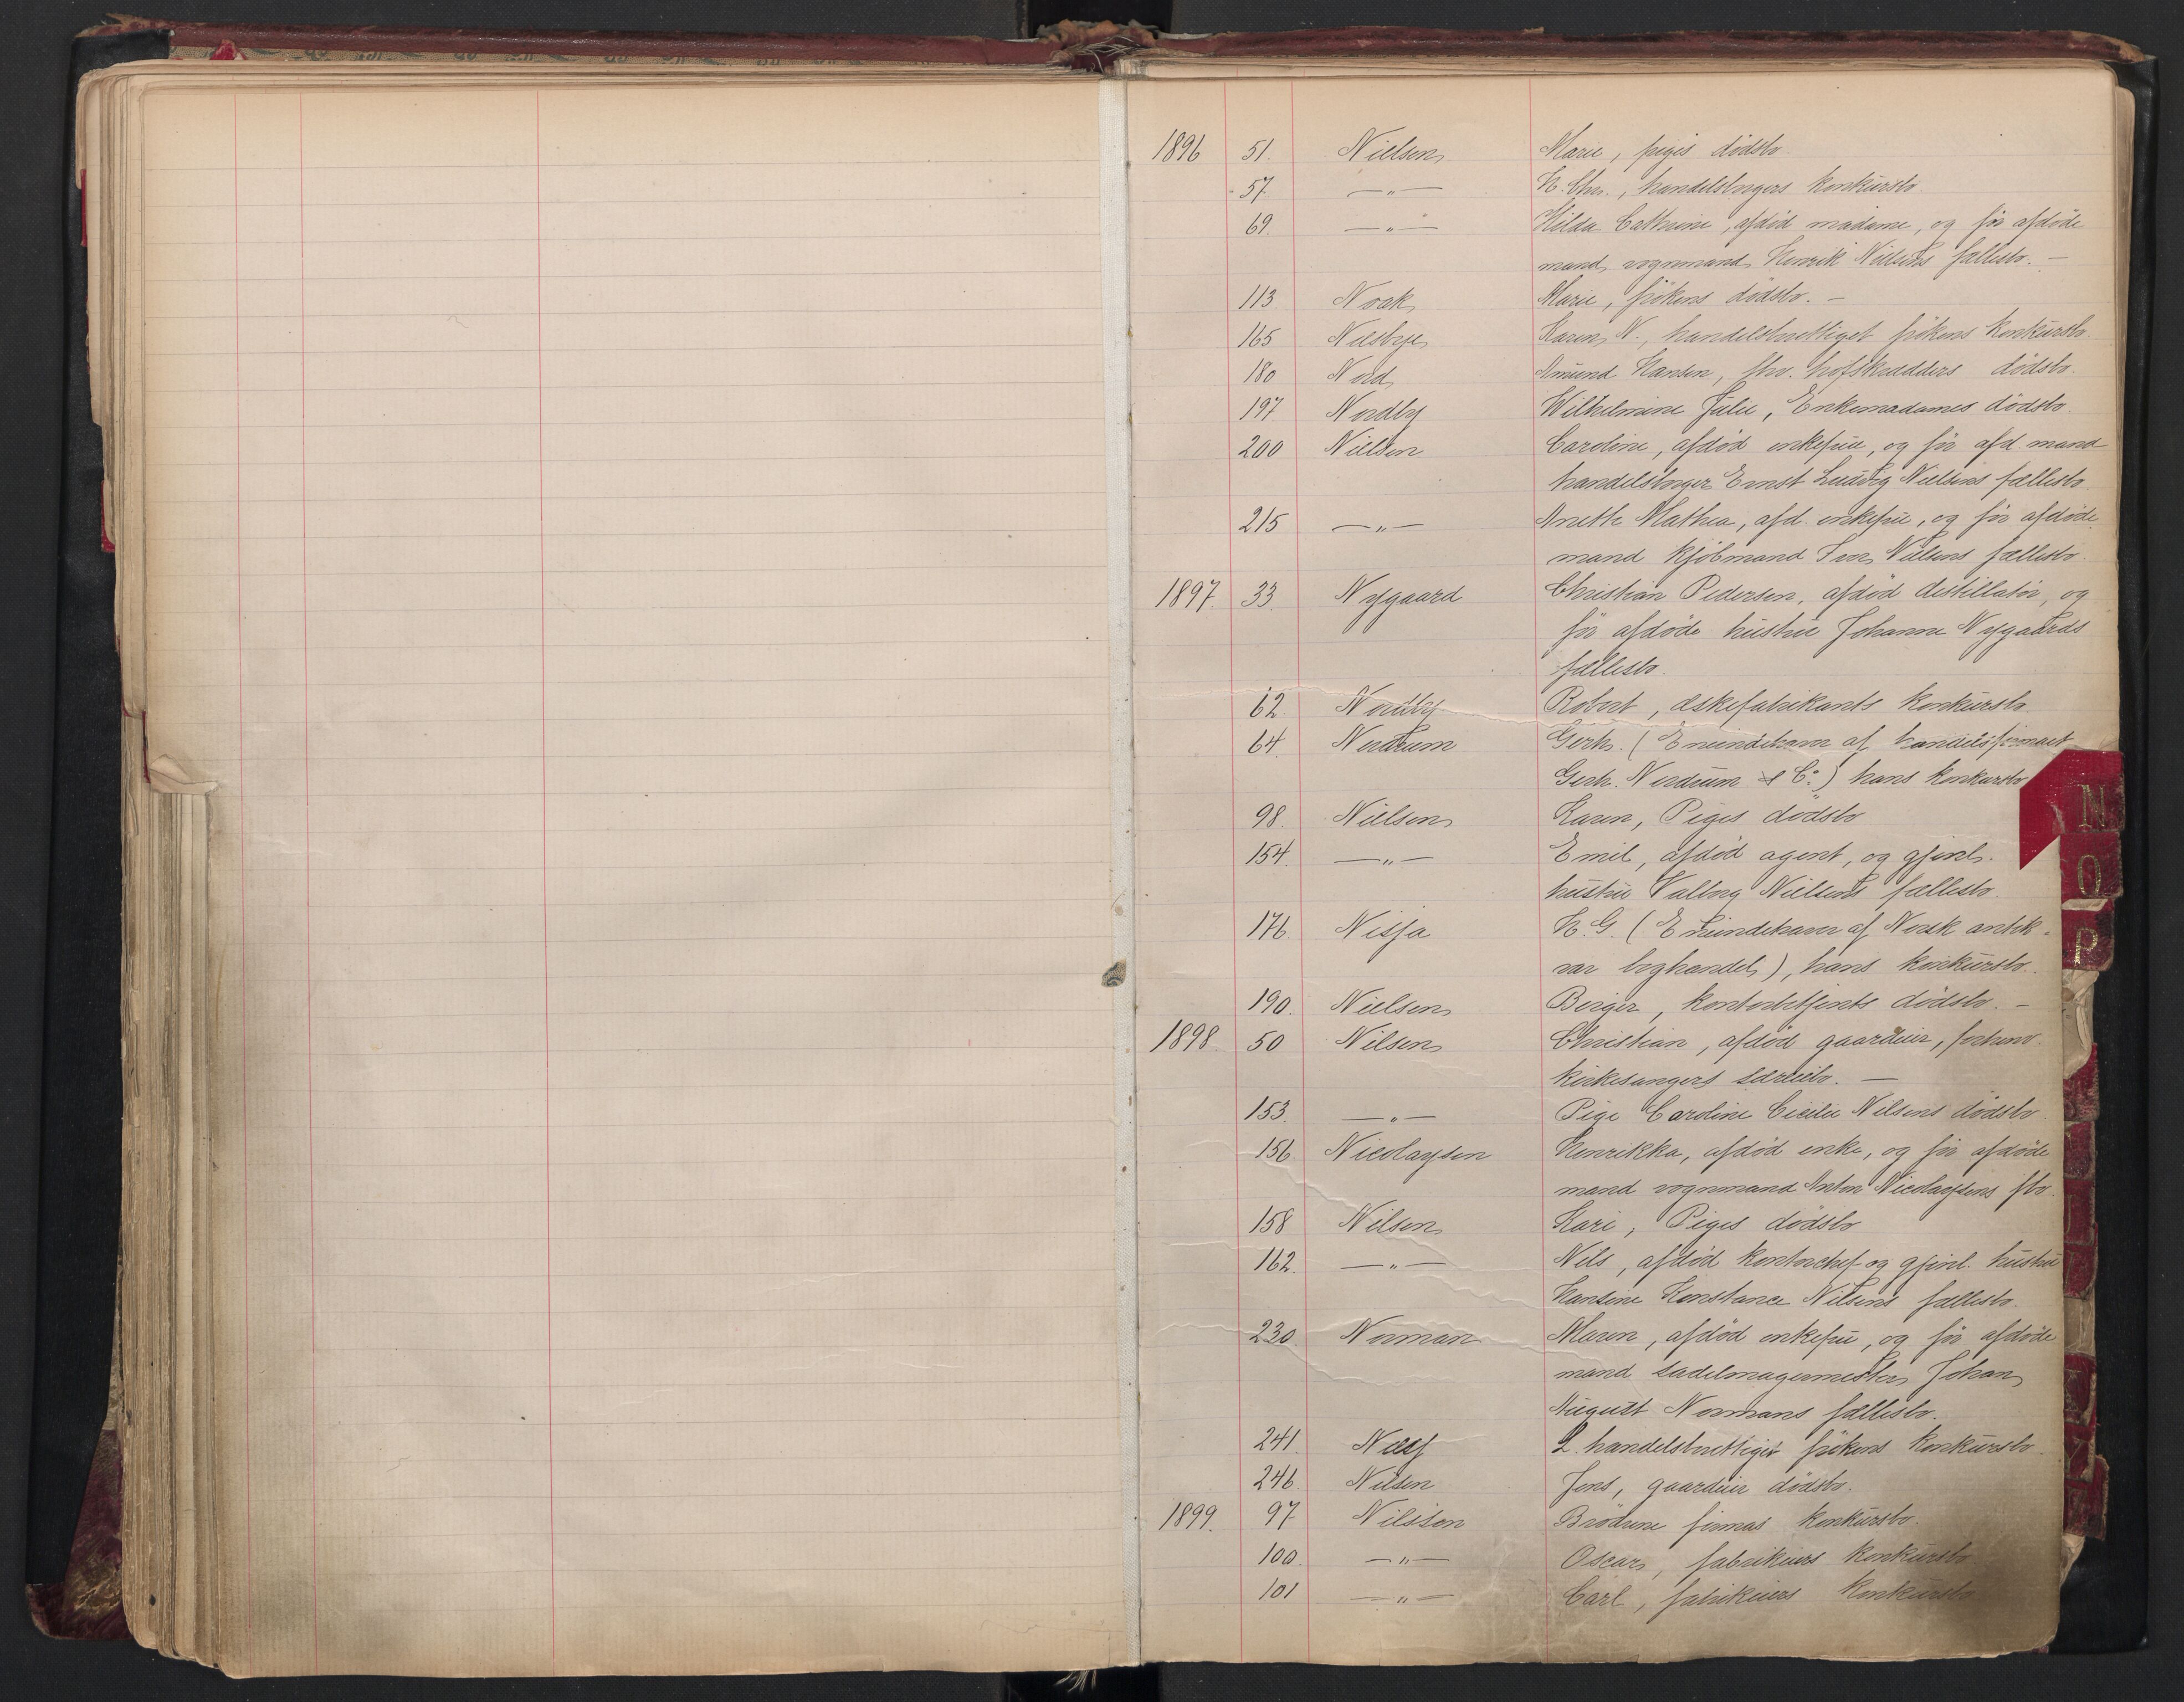 1896 51. Nielsen Marie, piges dødsbo.
57. —"— H. Chr., handelsbrgers konkursbo
69. —"— Hilda Cathrine, afdød madame, og før afdøde
mand, vognmand Henrik Nielsens fællesbo. —
113 Noak Marie, frøkens dødsbo. —
165 Neesbye Karen N., handelsberettiget frøkens konkursbo.
180 Nord Amund Hansen, fhv. hofskrædders dødsbo.
197 Nordby Wilhelmine Julie, Enkemadames dødsbo
200 Nielsen Caroline, afdød enkefru, og før afd. mand
handelsbrger Ernst Ludvig Nielsens fællesbo
215 —"— Anette Mathea, afd. enkefru, og før afdøde
mand kjøbmand Iver Nielsens fællesbo.
1897. 33. Nygaard Christian Pedersen, afdød destillatør, og
før afdøde hustru Johanne Nygaards
fællesbo.
62. Nordby Robert, æskefabrikants konkursbo
64. Nerdrum Gerh. (Eneindehaver af handelsfirmaet
Gerh. Nerdrum & Co.) hans konkursbo
98. Nielsen Karen, Piges dødsbo
154. —"— Emil, afdød agent, og gjenl.
hustru Valbrg Nielsens fællesbo.
176. Nisja H. G. (Eneindehaver af Norsk antik-
var boghandel), hans konkursbo.
190. Nielsen Berger, kontorbetjents dødsbo. —
1898. 50 Nilsen Christian, afdød gaardeier, forhenv.
kirkesangers særeiebo. —
153. —"— Pige Caroline Cicilie Nilsens dødsbo
156. Nicolaysen Henrikka, afdød enke, og før afdøde
mand vognmand Anton Nicolaysens fbo.
158 Nilsen Kari, Piges dødsbo
162. —"— Nils, afdød kontorchef og gjenl. hustru
Hansine Konstance Nilsens fællesbo.
230. Norman Maren, afdød enkefru, og før afdøde
mand sadelmagermester Johan
August Normans fællesbo.
241. L. handelsberettiget frøkens konkursbo
246. Nilsen Jens, gaardeier dødsbo.
1899. 97 Nilsson Brødrene firmas konkursbo.
100. —"— Oscar, fabrikeiers konkursbo
101 —"— Carl, fabrikeiers konkursbo
N
O
P